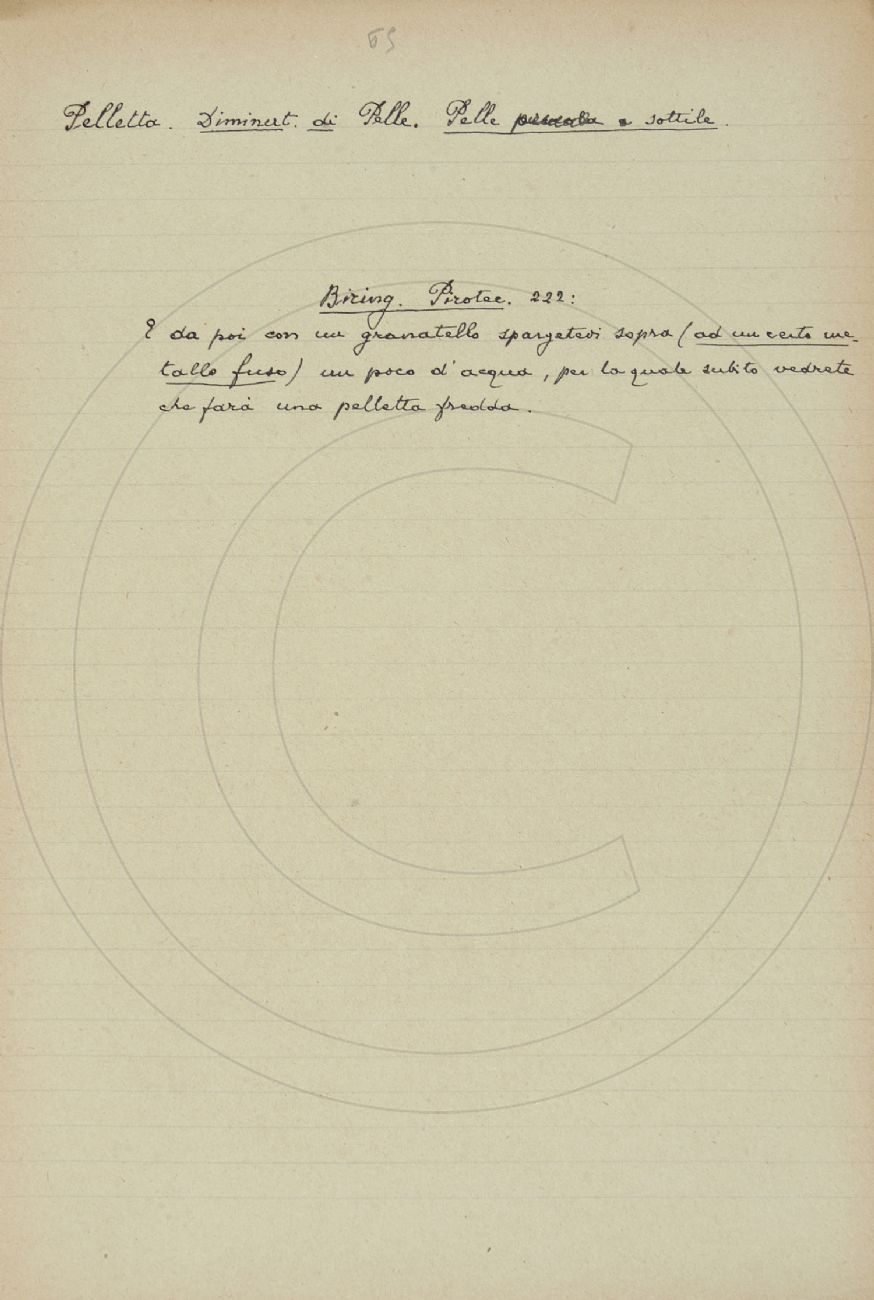 65
Pelletta. Diminut. di Pelle. Pelle sottile.
Biring. Pirotec. 222:
E da poi con un granatello spargetevi sopra (ad un certo me-
tallo fuso) un poco d'acqua, per la quale subito vedrete
che farà una pelletta fredda.